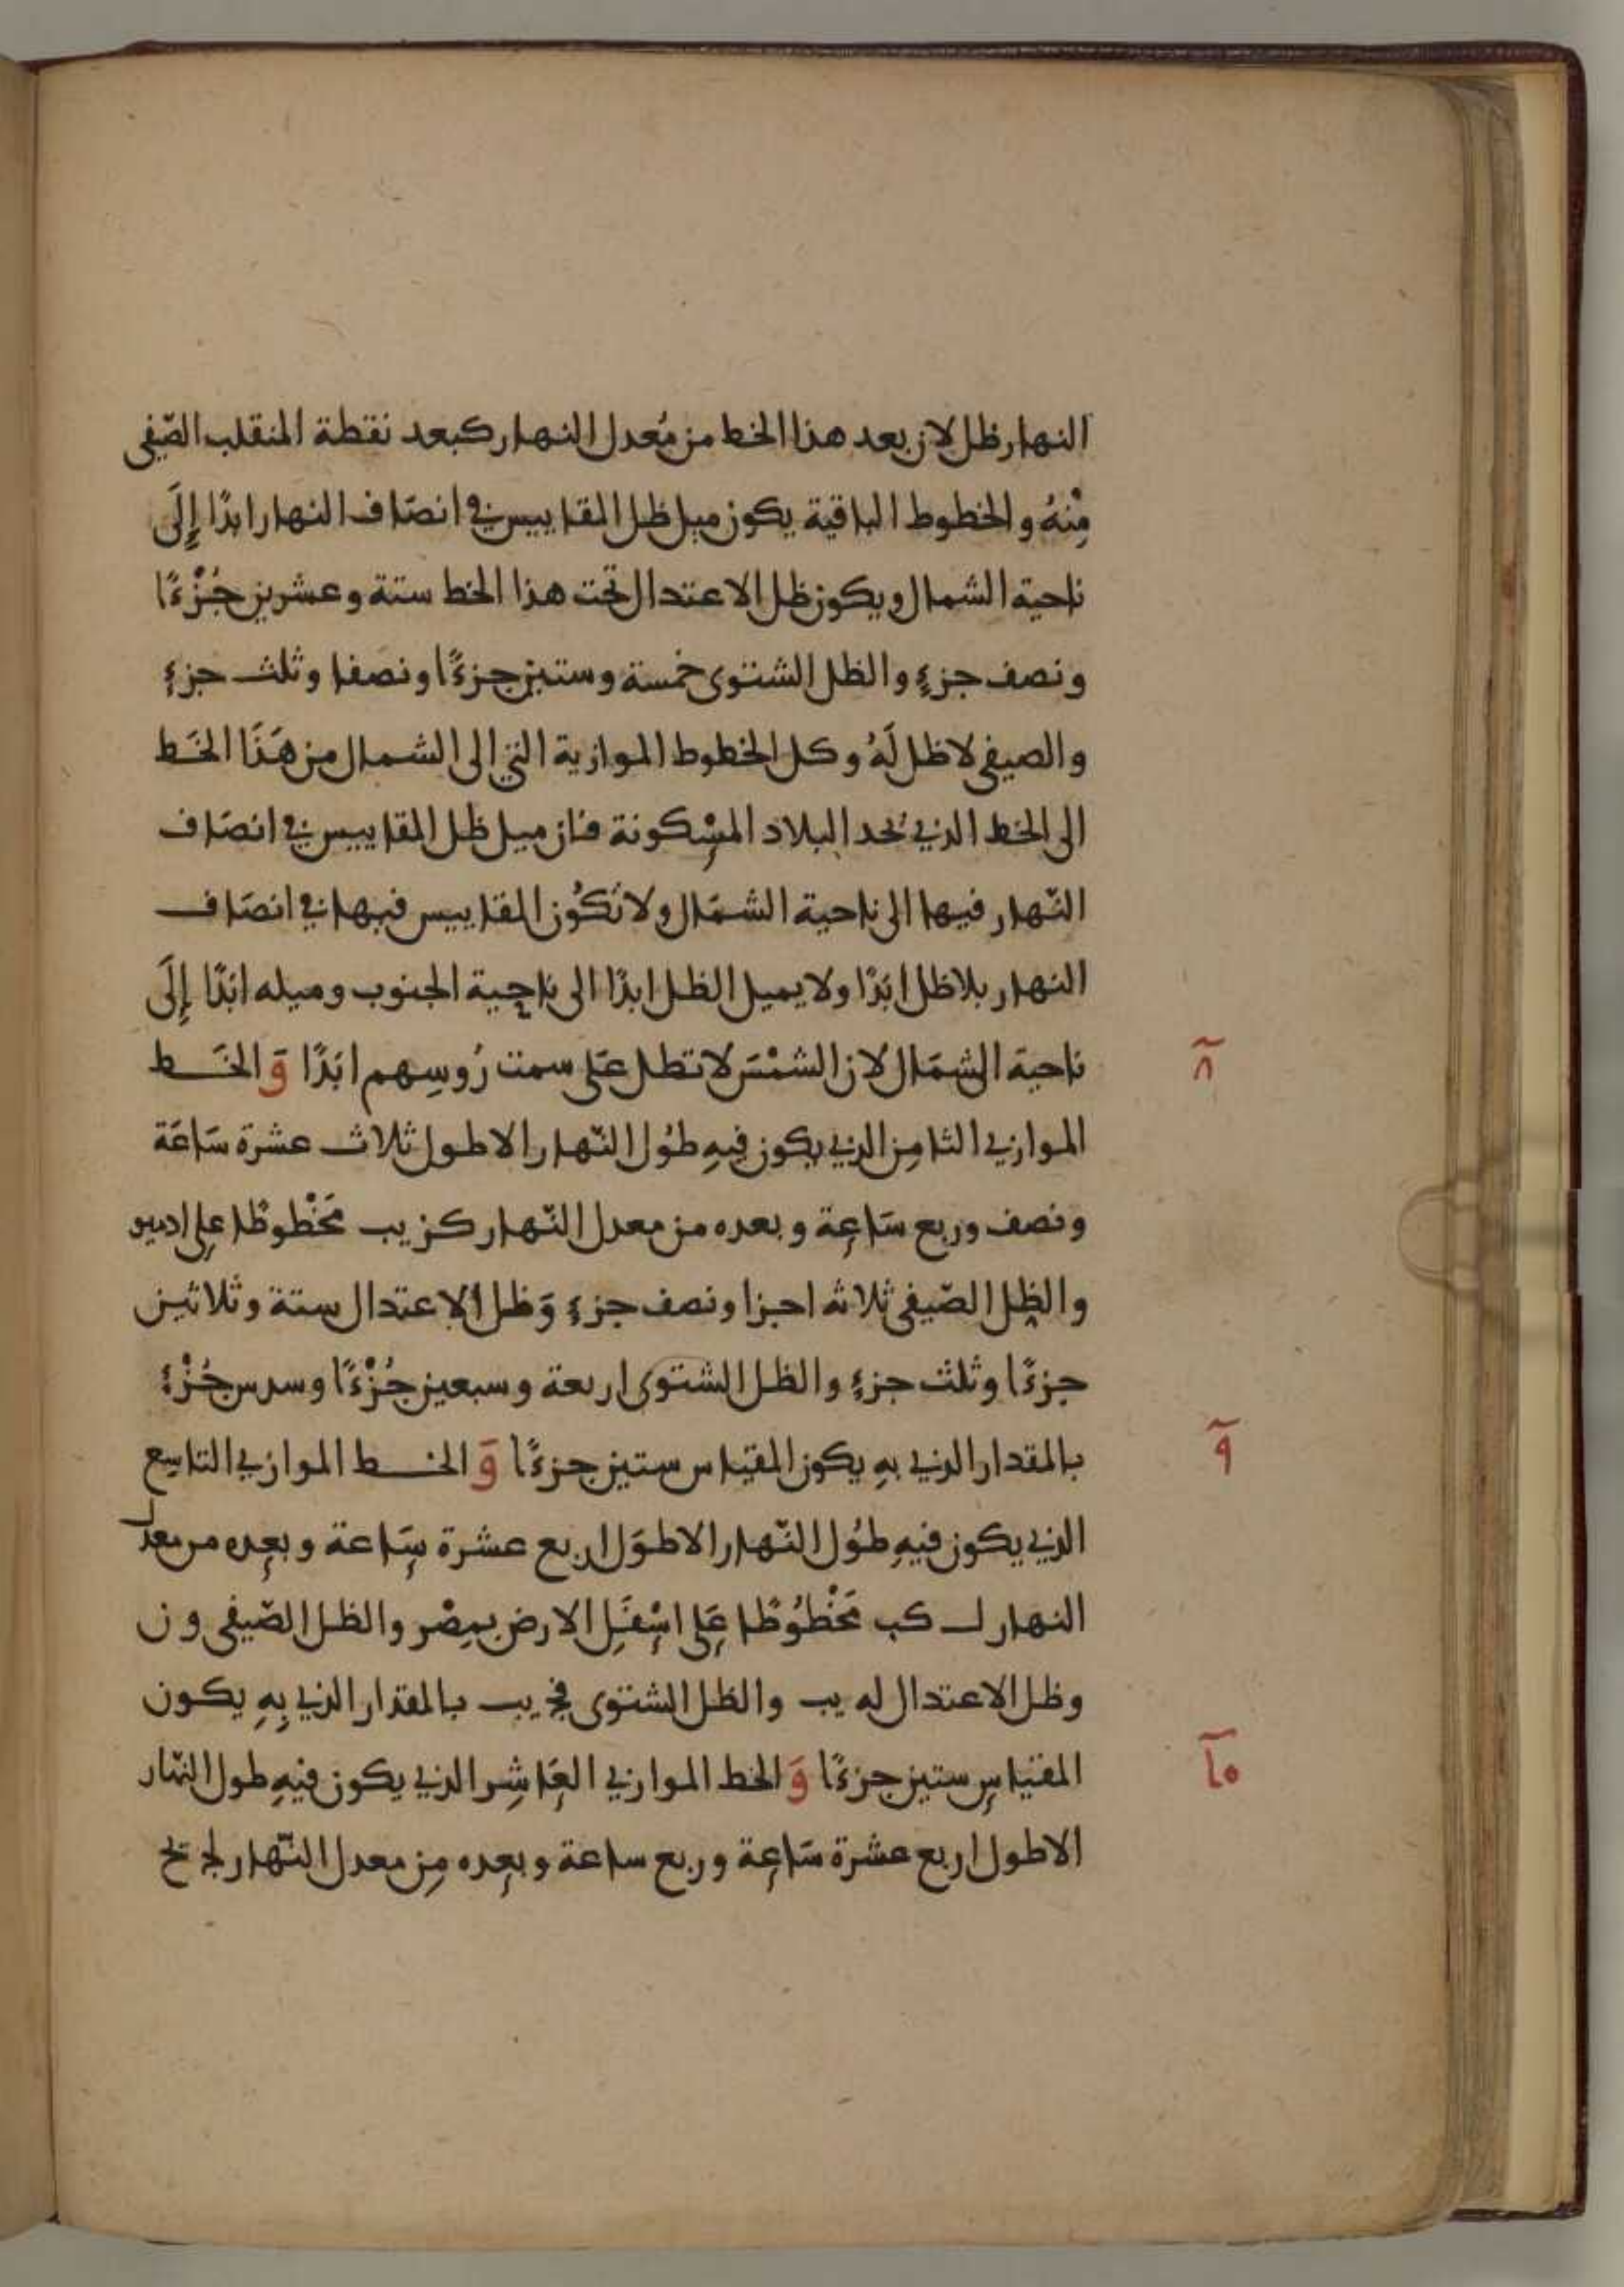 النهار ظل لان بعد هذا الخط من مُعدل النهار كبعد نقطة المنقلب الصّيفى
مِنْهُ والخطوط الباقية يكون ميل ظل المقاييس في انصَاف النهار ابدًا إِلَى
ناحية الشمال ويكون ظل الاعتدال تحت هذا الخط ستة وعشرين جُزْءًا
ونصف جزءٍ والظل الشتوى خمسة وستين جزءًا ونصفا وثلث جزءٍ
والصيفى لا ظل لَهُ وكل الخطوط الموازية التي الى الشمال من هَذَا الخَط
الى الخط الذي يحد البلاد المسْكونة فان ميل ظل المقاييس في انصَاف
النّهار فيها الى ناحية الشمَال ولا تكُون المقاييس فيها في انصَاف
النهار بلا ظل ابَدًا ولا يميل الظل ابدًا الى ناحية الجنوب وميله ابَدًا إِلَى
ناحية الشمَال لان الشمْسَ لا تطل عَلى سمت رُوسِهم ابَدًا وَ الخَـط
٨
الموازي الثامِن الذي يكون فيهِ طُول النّهار الاطول ثلاث عشرة سَاعَة
ونصف وربع سَاعِة وبعده من معدل النّهار كز يب مَخْطوطًا على ادسو
والظل الصّيفى ثلاثه اجزا ونصف جزءٍ وَظل الاعتدال ستة وثلاثين
جزءًا وثلث جزءٍ والظل الشتوى اربعة وسبعين جُزْءًا وسدس جُزْءٍ
بالمقدار الذي بهِ يكون المقياس ستين جزءًا وَ الخـط الموازي التاسِع
٩
الذي يكون فيهِ طُول النّهار الاطوَل اربع عشرة سَاعة وبعده من معدل
النهار لـ كب مَخْطُوطًا عَلى اسْفَلِ الارض بمِصْر والظل الصّيفى و ن
وظل الاعتدال له يب والظل الشتوى فج يب بالمقدار الذي بِهِ يكون
المقياس ستين جزءًا وَ الخط الموازي العَاشِر الذي يكون فيهِ طول النّهار
١٥
الاطول اربع عشرة سَاعِة وربع ساعة وبعده مِن معدل النّهار لج يح